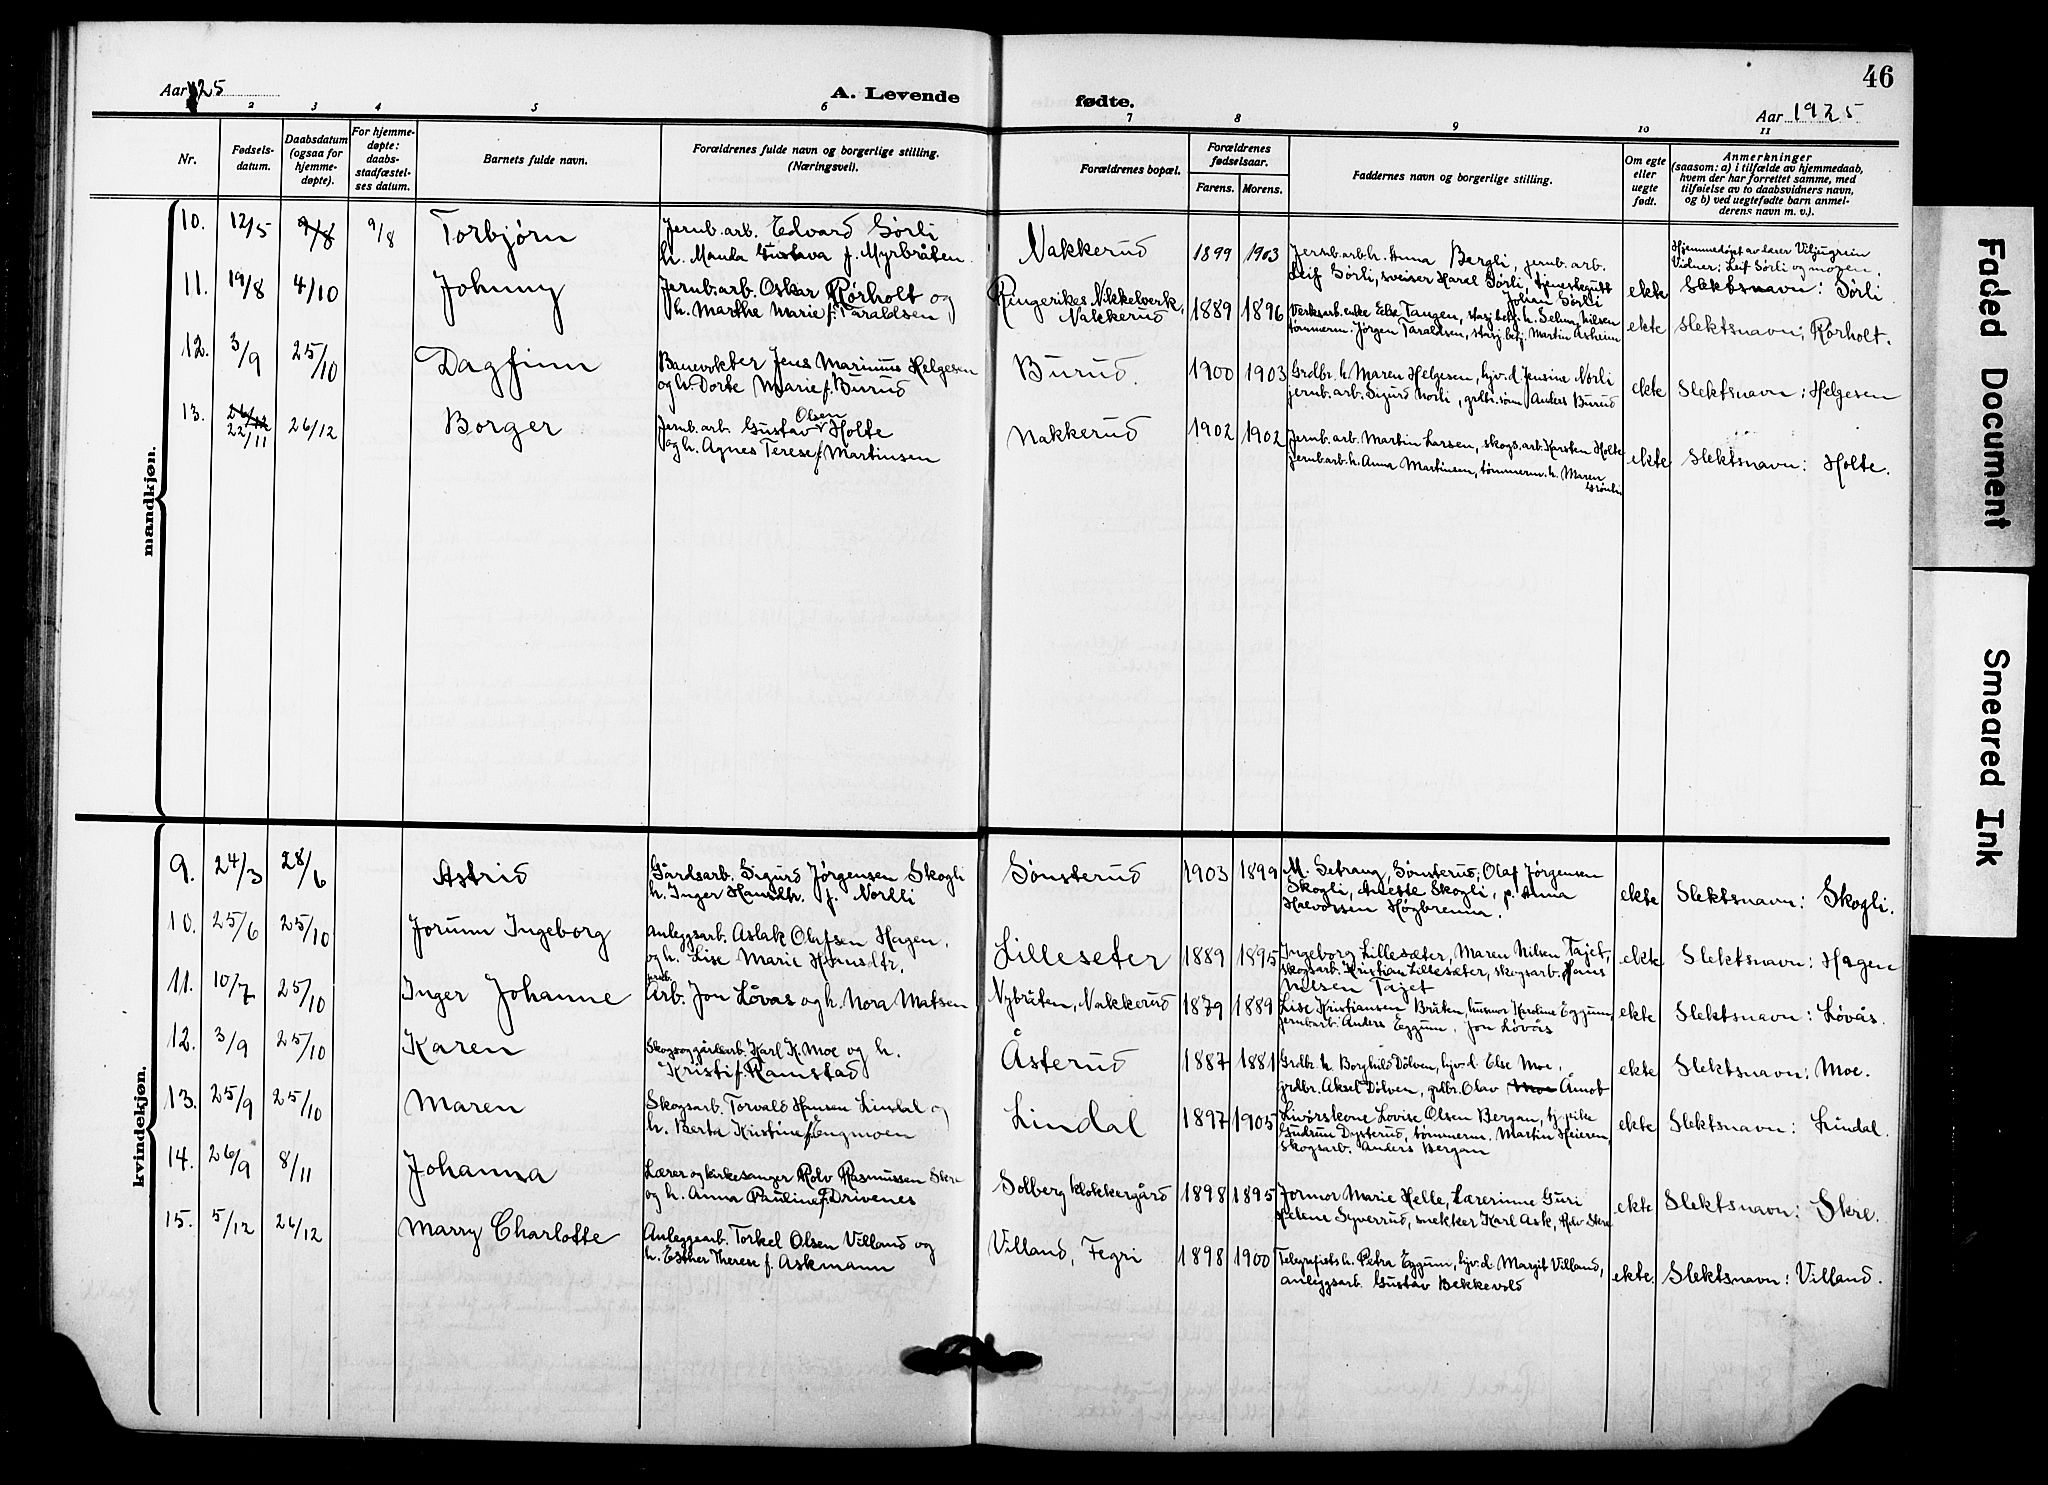 Aar 1925
A. Levende
fødte.
46
Aar 1925
1 2 3 4 5 6 7 8 9 10 11
Nr.
Fødsels-
datum.
Daabsdatum
(ogsaa for
hjemme-
døpte).
For hjemme-
døpte:
daabs-
stadfæstel-
ses datum.
Barnets fulde navn.
Forældrenes fulde navn og borgerlige stilling.
(Næringsvei).
Forældrenes bopæl.
Forældrenes
fødselsaar.
Farens. Morens.
Faddernes navn og borgerlige stilling.
Om egte
eller
uegte
født.
Anmerkninger
(saasom: a) i tilfælde av hjemmedaab,
hvem der har forrettet samme, med
tilføielse av to daabsvidners navn,
og b) ved uegtefødte barn anmel-
derens navn m. v.).
mandkjøn.
10. 12/5 9/8 9/8 Torbjørn
Jernb. arb. Edvard Sørli
h. Manda Gustava f. Myrbråten
Nakkerud 1899 1903
Jernb.arb.h. Anna Bergli, jernb. arb.
Leif Sørli, sveiser Haral Sørli, tjenestegutt
Johan Sørli
ekte
Hjemmedøpt av lærer Viljugrein
Vidner: Leif Sørli og moren.
Slektsnavn: Sørli
11. 19/8 4/10 Johnny
Jernb. arb. Oskar Rørholt og
h. Marthe Marie f. Taraldsen
Ringerikes Nikkelverk,
Nakkerud 1889 1896
Verksarb. enke Else Tangen, stasj.betj. h. Selma Nilsen
tømmerm. Jørgen Taraldsen, stasj.betj. Martin Askeim
ekte Slektsnavn: Rørholt.
12. 3/9 25/10 Dagfinn
Banevokter Jens Marinius Helgesen
og h. Dorte Marie f. Burud
Burud. 1900 1903
Grdbr. h. Maren Helgesen, hjv.d. Jensine Norli
jernb. arb. Sigurd Norli, grdbr. sønn Anders Burud
ekte Slektsnavn: Helgesen
13. 26/12 22/11 26/12 Borger
Jernb. arb. Gustav Olsen Holte
og h. Agnes Terese f. Martinsen
Nakkerud 1902 1902
Jernb. arb. Martin Larsen, skogs. arb. Karsten Holte
jernb.arb. h. Anna Martinsen, tømmerm. h. Maren
Grønli
ekte Slektsnavn: Holte.
kvindekjøn.
9. 24/3 28/6 Astrid
Gårdsarb. Sigurd Jørgensen Skogli
h. Inger Hansdtr. f. Nordli
Sønsterud 1903 1899
M. Setrang, Sønsterud, Olaf Jørgensen
Skogli, Anette Skogli, p. Anna
Halvorsen Høgbrenna.
ekte Slektsnavn: Skogli.
10. 25/6 25/10 Jorunn Ingeborg
Anleggsarb. Aslak Olafsen Hagen.
og h. Lise Marie Hansdtr.
Lilleseter 1889 1895
Ingeborg Lillesæter, Maren Nilsen Tajet,
skogsarb. Kristian Lillesæter, skogsarb. Hans
Nilsen Tajet
ekte Slektsnavn: Hagen
11. 10/7 25/10 Inger Johanne
jernb.
Arb. Jon Løvås og h. Nora Matsen
Nybråten, Nakkerud 1879 1889
Lise Kristiansen Bråten, husmor Karoline Eggum,
jernbarb. Anders Eggum, Jon Løvås
ekte Slektsnavn: Løvås.
12. 3/9 25/10 Karen
Skogs og gårdarb. Karl K. Moe og h.
Kristi f. Ramstad
Åsterud 1887 1881
Grdbr. h. Borghild Dølven, hjv.d. Else Moe,
grdbr. Aksel Dølven, grdbr. Olav Moe Åmot
ekte Slektsnavn: Moe.
13. 25/9 25/10 Maren
Skogsarb. Torvald Hansen Lindal og
h. Berta Kristine f. Engmoen
Lindal 1897 1905
Livørskone Lovise Olsen Bergan, tj.pike
Gudrun Dysterud, tømmerm. Martin Heieren,
skogsarb. Anders Bergan
ekte Slektsnavn: Lindal.
14. 26/9 8/11 Johanna
Lærer og kirkesanger Rolv Rasmussen Skre
og h. Anna Pauline f. Drivenes
Solberg klokkergård 1898 1895
Jormor Marie Helle, Lærerinne Guri
Helene Syverrud, snekker Karl Ask, Rolv Skre
ekte Slektsnavn: Skre.
15. 5/12 26/12 Marry Charlotte
Anleggsarb. Torkel Olsen Villand og
h. Esther Therese f. Askmann
Villand, Tegri 1898 1900
Telegrafists h. Petra Eggum, hjv.d. Margit Villand,
anleggsarb. Gustav Bekkevold
ekte. Slektsnavn: Villand.
Faded Document
Smeared Ink